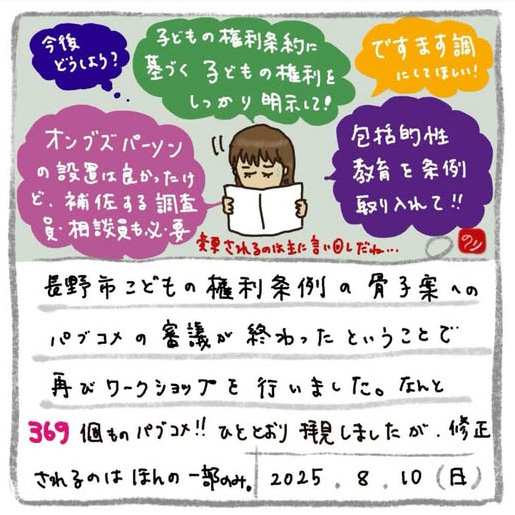 今後
どうしよう?
子どもの権利条約に
基づく 子どもの権利を
しっかり明示して!
ですます調
にしてほしい!
オンブズパーソン
の設置は良かったけ
ど、補佐する調査
員・相談員も必要
包括的性
教育を条例
取り入れて!!
変更されるのは主に言い回しだね...
のり
長野市こどもの権利条例の骨子案への
パブコメの審議が終わったということで
再びワークショップを行いました。なんと
369個ものパブコメ!! ひととおり拝見しましたが、修正
されるのはほんの一部のみ。 2025.8.10(日)